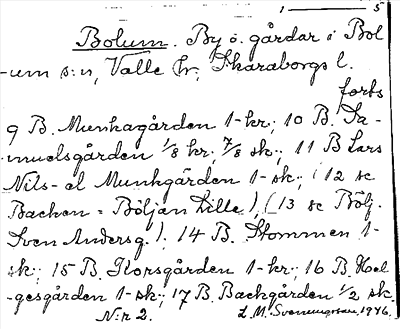 1 — 5
Bolum. By o. gårdar i Bol-
-um s:n, Valle hr, Skaraborgs l.
forts
9 B. Munkagården 1-kr; 10 B. Sa-
muelsgården 1/8 kr, 7/8 sk; 11 B Lars
Nils- el Munkgården 1-sk; (12 se
Backen = Böljan Lille), (13 se Bölj.
Sven Andersg.); 14 B. Stommen 1-
sk; 15 B. Storsgården 1-kr; 16 B. Hel-
-gesgården 1-sk; 17 B. Backgården 1/2 sk.
N:r 2. L. M. Svenungsson, 1946.